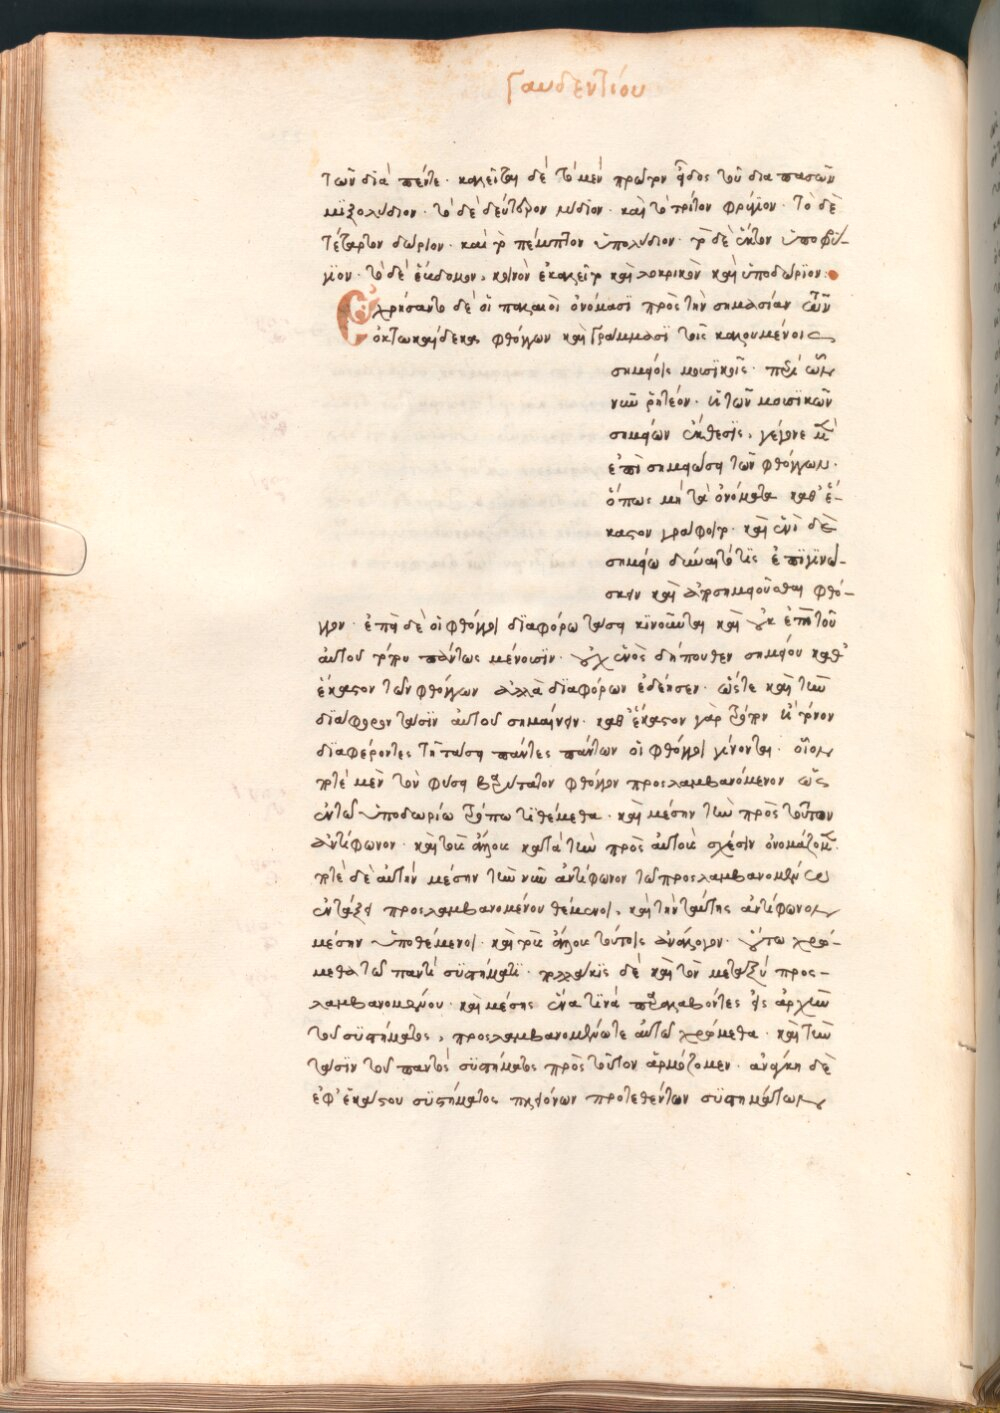 Γαυδεντίου
τῶν διὰ πέντε· καλεῖται δὲ τὸ μὲν πρῶτον εἶδος τοῦ διαπασῶν
μιξολύδιον· τὸ δὲ δεύτερον λύδιον· καὶ τὸ τρίτον φρύγιον· τὸ δὲ
τέταρτον δώριον· καὶ τὸ πέμπτον ὑπολύδιον· τὸ δὲ ἕκτον ὑποφρύ-
γιον· τὸ δὲ ἕβδομον, κοινὸν ἐκαλεῖτο καὶ λοκρικὸν καὶ ὑποδώριον:
Ἐχρήσαντο δὲ οἱ παλαιοὶ ὀνόμασι πρὸς τὴν σημασίαν τῶν
ὀκτωκαίδεκα φθόγγων καὶ γράμμασι τοῖς καλουμένοις
σημείοις μουσικοῖς· περὶ ὧν
νῦν ῥητέον· ἡ τῶν μουσικῶν
σημείων ἔκθεσις, γέγονε μὲν
ἐπὶ σημειώσει τῶν φθόγγων·
ὅπως μὴ τὰ ὀνόματα καθ' ἕ-
καστον γράφοιτο· καὶ ἑνὶ δὲ
σημείῳ δύναιτό τις ἐπιγινώ-
σκειν καὶ ἀποσημειοῦσθαι φθό-
γγον· ἐπεὶ δὲ οἱ φθόγγοι διαφόρῳ τάσει κινοῦνται καὶ οὐκ ἐπὶ τοῦ
αὐτοῦ τόπου πάντως μένουσιν· οὐχ ἑνὸς δήπουθεν σημείου καθ'
ἕκαστον τῶν φθόγγων ἀλλὰ διαφόρων ἐδέησεν· ὥστε καὶ τὴν
διάφορον τάσιν αὐτοῦ σημαίνειν· καθ' ἕκαστον γὰρ τρόπον ἢ τόνον
διαφέροντες τῇ τάσει πάντες πάντων οἱ φθόγγοι γίνονται· οἷον
ποτὲ μὲν τὸν φύσει βαρύτατον φθόγγον προσλαμβανόμενον ὡς
ἐν τῷ ὑποδωρίῳ τρόπῳ τιθέμεθα· καὶ μέσην τὴν πρὸς τοῦτον
ἀντίφωνον· καὶ τοὺς ἄλλους κατὰ τὴν πρὸς αὐτοὺς σχέσιν ὀνομάζομεν·
ποτὲ δὲ αὐτὴν μέσην τὴν νῦν ἀντίφωνον τῷ προσλαμβανομένῳ
ἐν τάξει προσλαμβανομένου θέμενοι, καὶ τὴν ταύτης ἀντίφωνον
μέσην ὑποθέμενοι· καὶ τοὺς ἄλλους τούτοις ἀνάλογον· οὕτω χρώ-
μεθα τῷ παντὶ συστήματι· πολλάκις δὲ καὶ τὸν μεταξύ προσ-
λαμβανομένου· καὶ μέσης ἕνα τινὰ παραλαβόντες εἰς ἀρχὴν
τοῦ συστήματος, προσλαμβανομένῳ τε αὐτῷ χρώμεθα· καὶ τὴν
τάσιν τοῦ παντὸς συστήματος πρὸς τοῦτον ἁρμόζομεν· ἀνάγκη δὲ
ἐφ' ἑκάστου συστήματος πλειόνων προτεθέντων συστημάτων